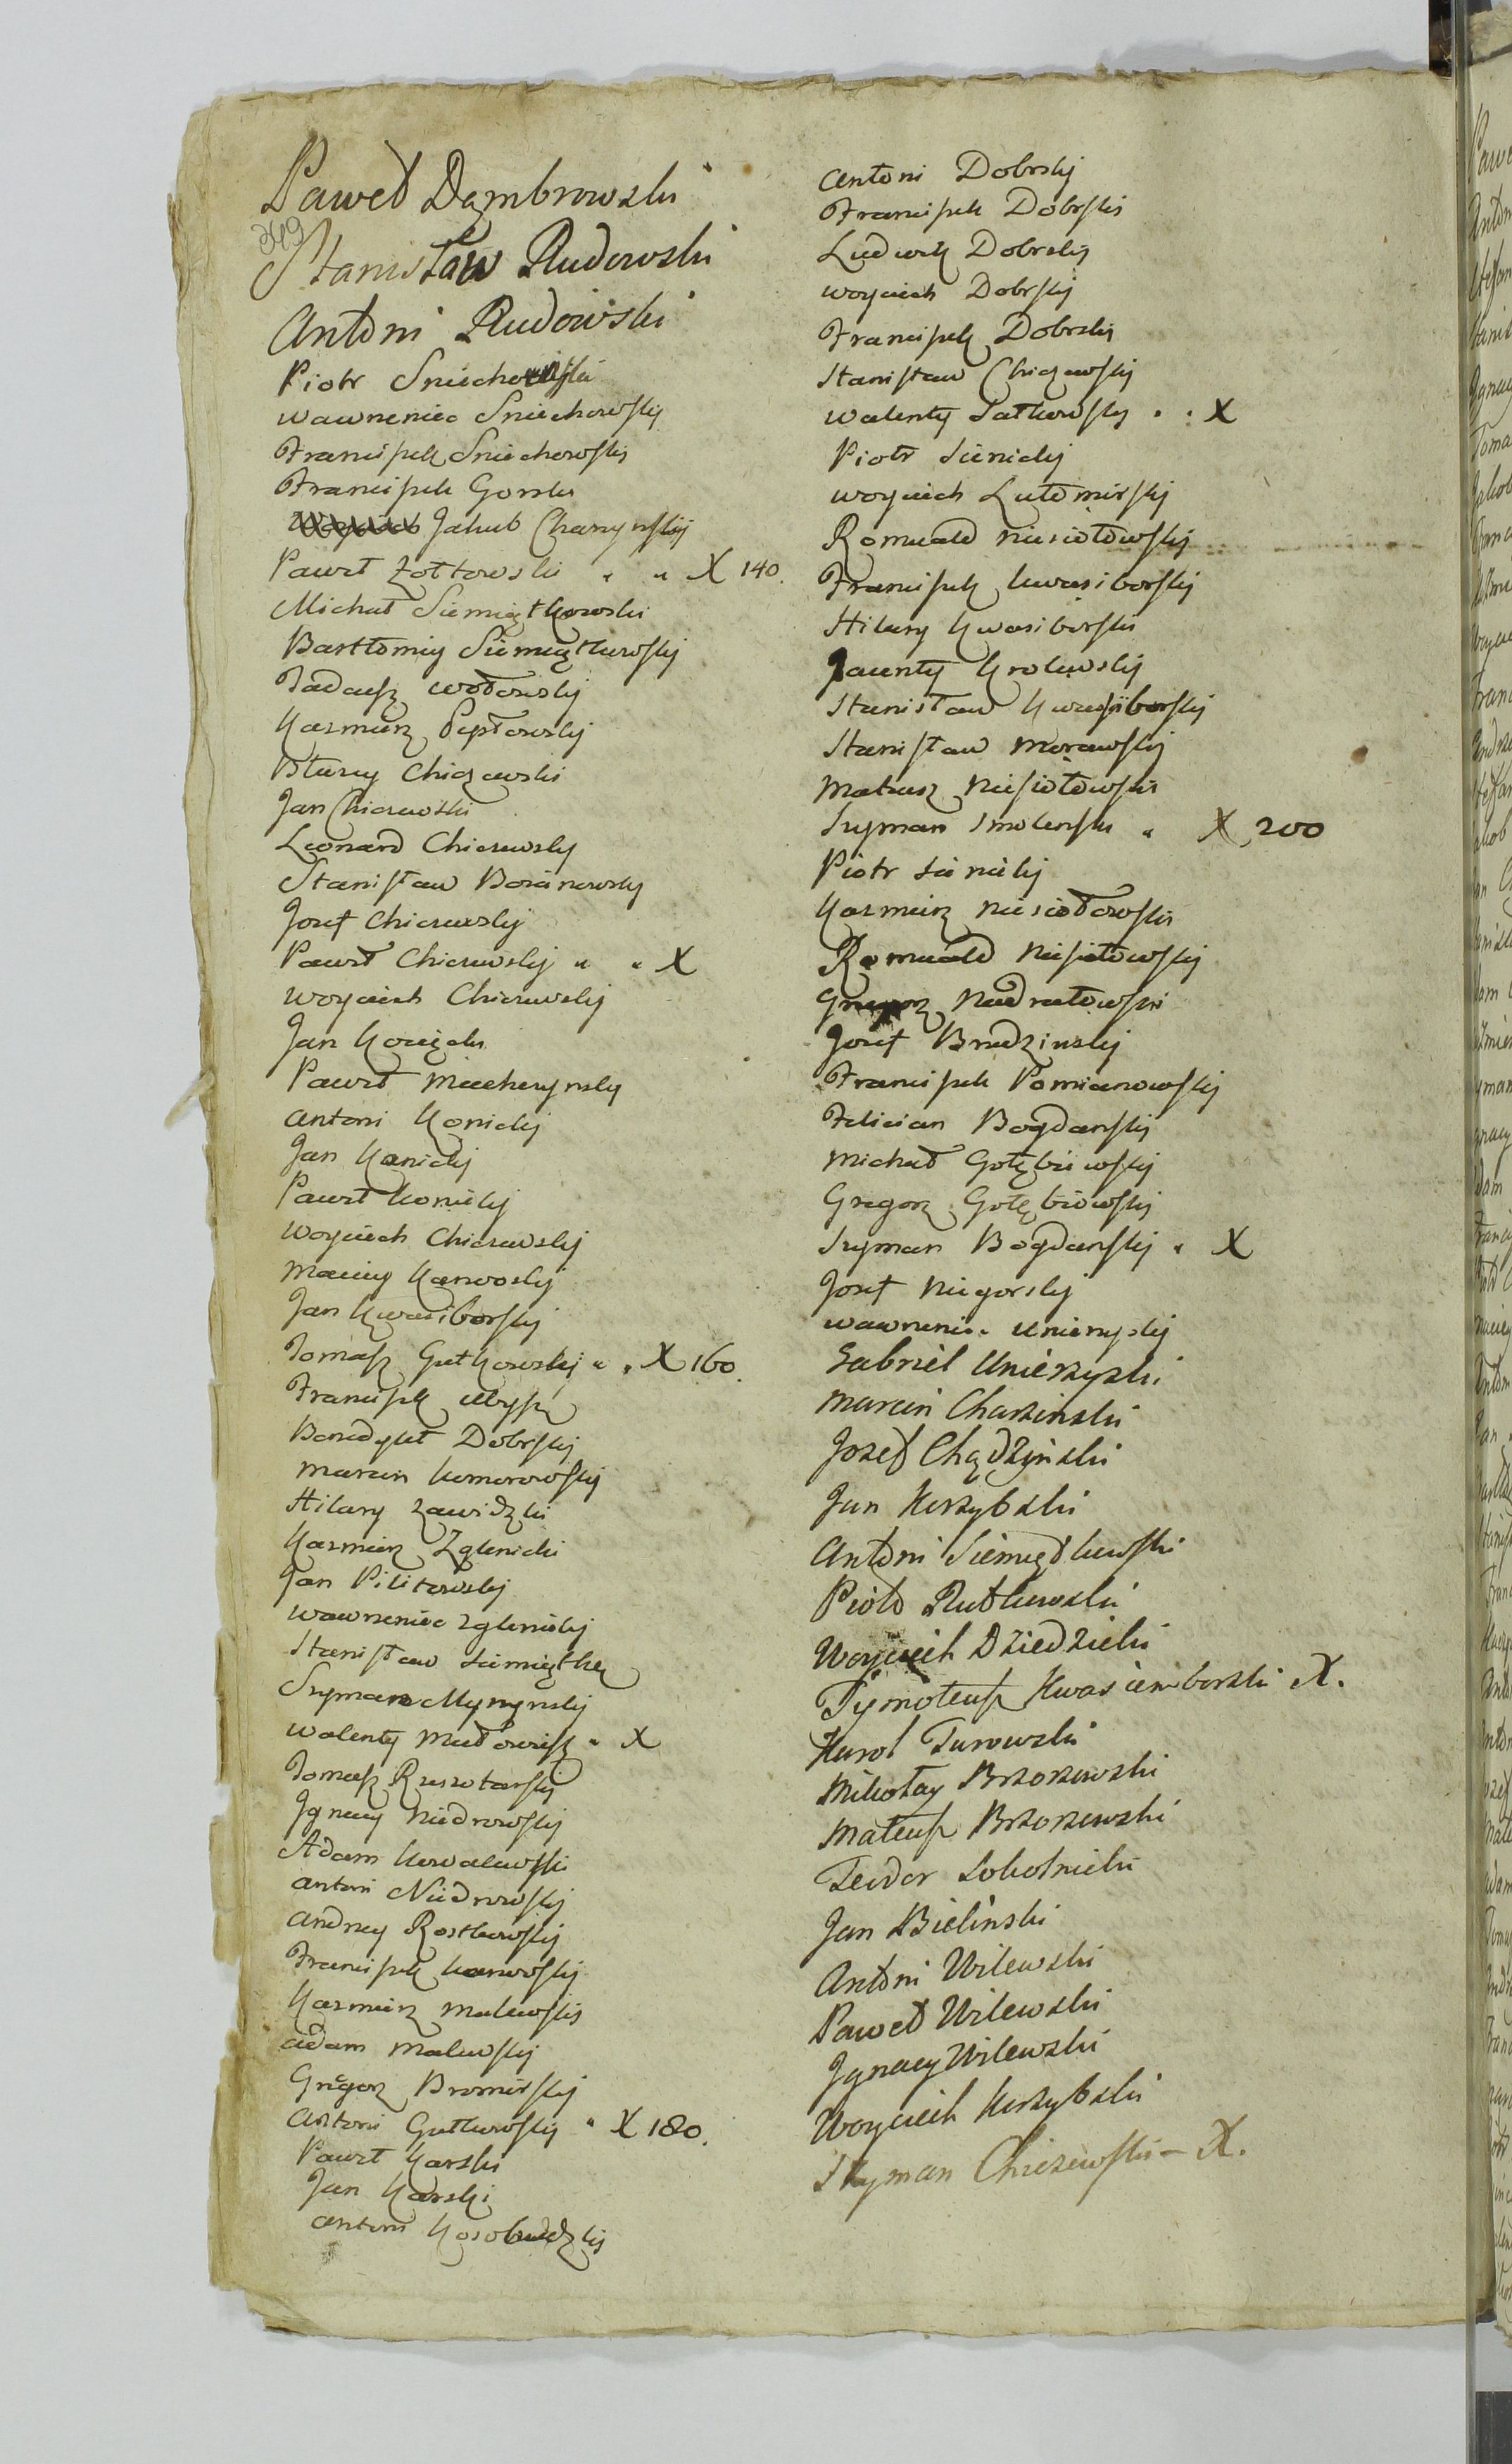 Paweł Dąmbrowski
Stanisław Rudowski
Antoni Rudowski
Piotr Sniechowski
Wawrzeniec Sniechowskij
Franciszek Sniechowskij
Franciszek Gorski
Jakub Charzynskij
Paweł Zołtowski „ „ X 140.
Michał Siemiątkowski
Bartłomiy Siemiątkowskij
Tadeusz Wołowskij
Kazmierz Pepłowskij
Błazey Chiczewski
Jan Chiczewski
Leonard Chiczewsky
Stanisław Bozanowsky
Jozef Chiczewskij
Paweł Chiczewskij „ „ X
Woyciech Chiczewskij
Jan
Paweł Miecherzynsky
Antoni Konickij
Jan Konickij
Paweł Konickij
Woyciech Chiczewskij
Maciey Karwoskij
Jan Kwasiborskij
Tomasz Gutkowskij „ „ X 160.
Franciszek
Benedykt Dobrskij
Marcin Komorowskij
Hilary Zawidzki
Kazmierz Zglenicki
Jan Pilitowskij
Wawrzeniec Zglenickij
Stanisław Siemiątka
Szyman
Walenty „ X
Tomasz Rzeszotarskij
Jgnacy Niedrowskij
Adam Kowalewski
Antoni Niedrowskij
Andrzey Rostkowskij
Franciszek Karwowskij
Kazmierz Malewskij
Adam Malewskij
Grzegorz Bromirskij
Antoni Gutkowskij „ X 180.
Paweł Karski
Jan Karski
Antoni Kosobudzkij
Antoni Dobrskij
Franciszek Dobrskij
Ludwik Dobrskij
Woyciech Dobrskij
Franciszek Dobrskij
Stanisław Chiczewskij
Walenty Sutkowskij „ „ X
Piotr Sienickij
Woyciech Lutomirskij
Romuald Niesiołowskij
Franciszek Kwasiborskij
Hilary Kwasiborskij
Jacenty Krolewskij
Stanisław Kwasiborskij
Stanisław Morawskij
Mateusz Niesiołowskij
Szyman Smolenski „ X 200
Piotr Sienickij
Kazmierz Niesiołowskij
Romuald Niesiołowskij
Grzegorz Nadratowski
Jozef Brudzinskij
Franciszek Pomianowskij
Felician Bogdanskij
Michał Gołębiewskij
Gregorz Gołębiowskij
Szyman Bogdanskij „ X
Jozef Niegorskij
Wawrzeniec Unierzyskij
Gabriel Unierzyski
Marcin Charzinski
Jozef Chądzyński
Jan Korzybski
Antoni Siemiądkowski
Piotr Rutkowski
Woyciech Dziedzicki
Tymoteusz Kwasiemborski X.
Karol Turowski
Mikołay Brzozowski
Mateusz Brzozewski
Teodor Sokolnicki
Jan Bieliński
Antoni Wilewski
Paweł Wilewski
Jgnacy Wilewski
Woyciech Korzybski
Szyman Chiczewski – X.